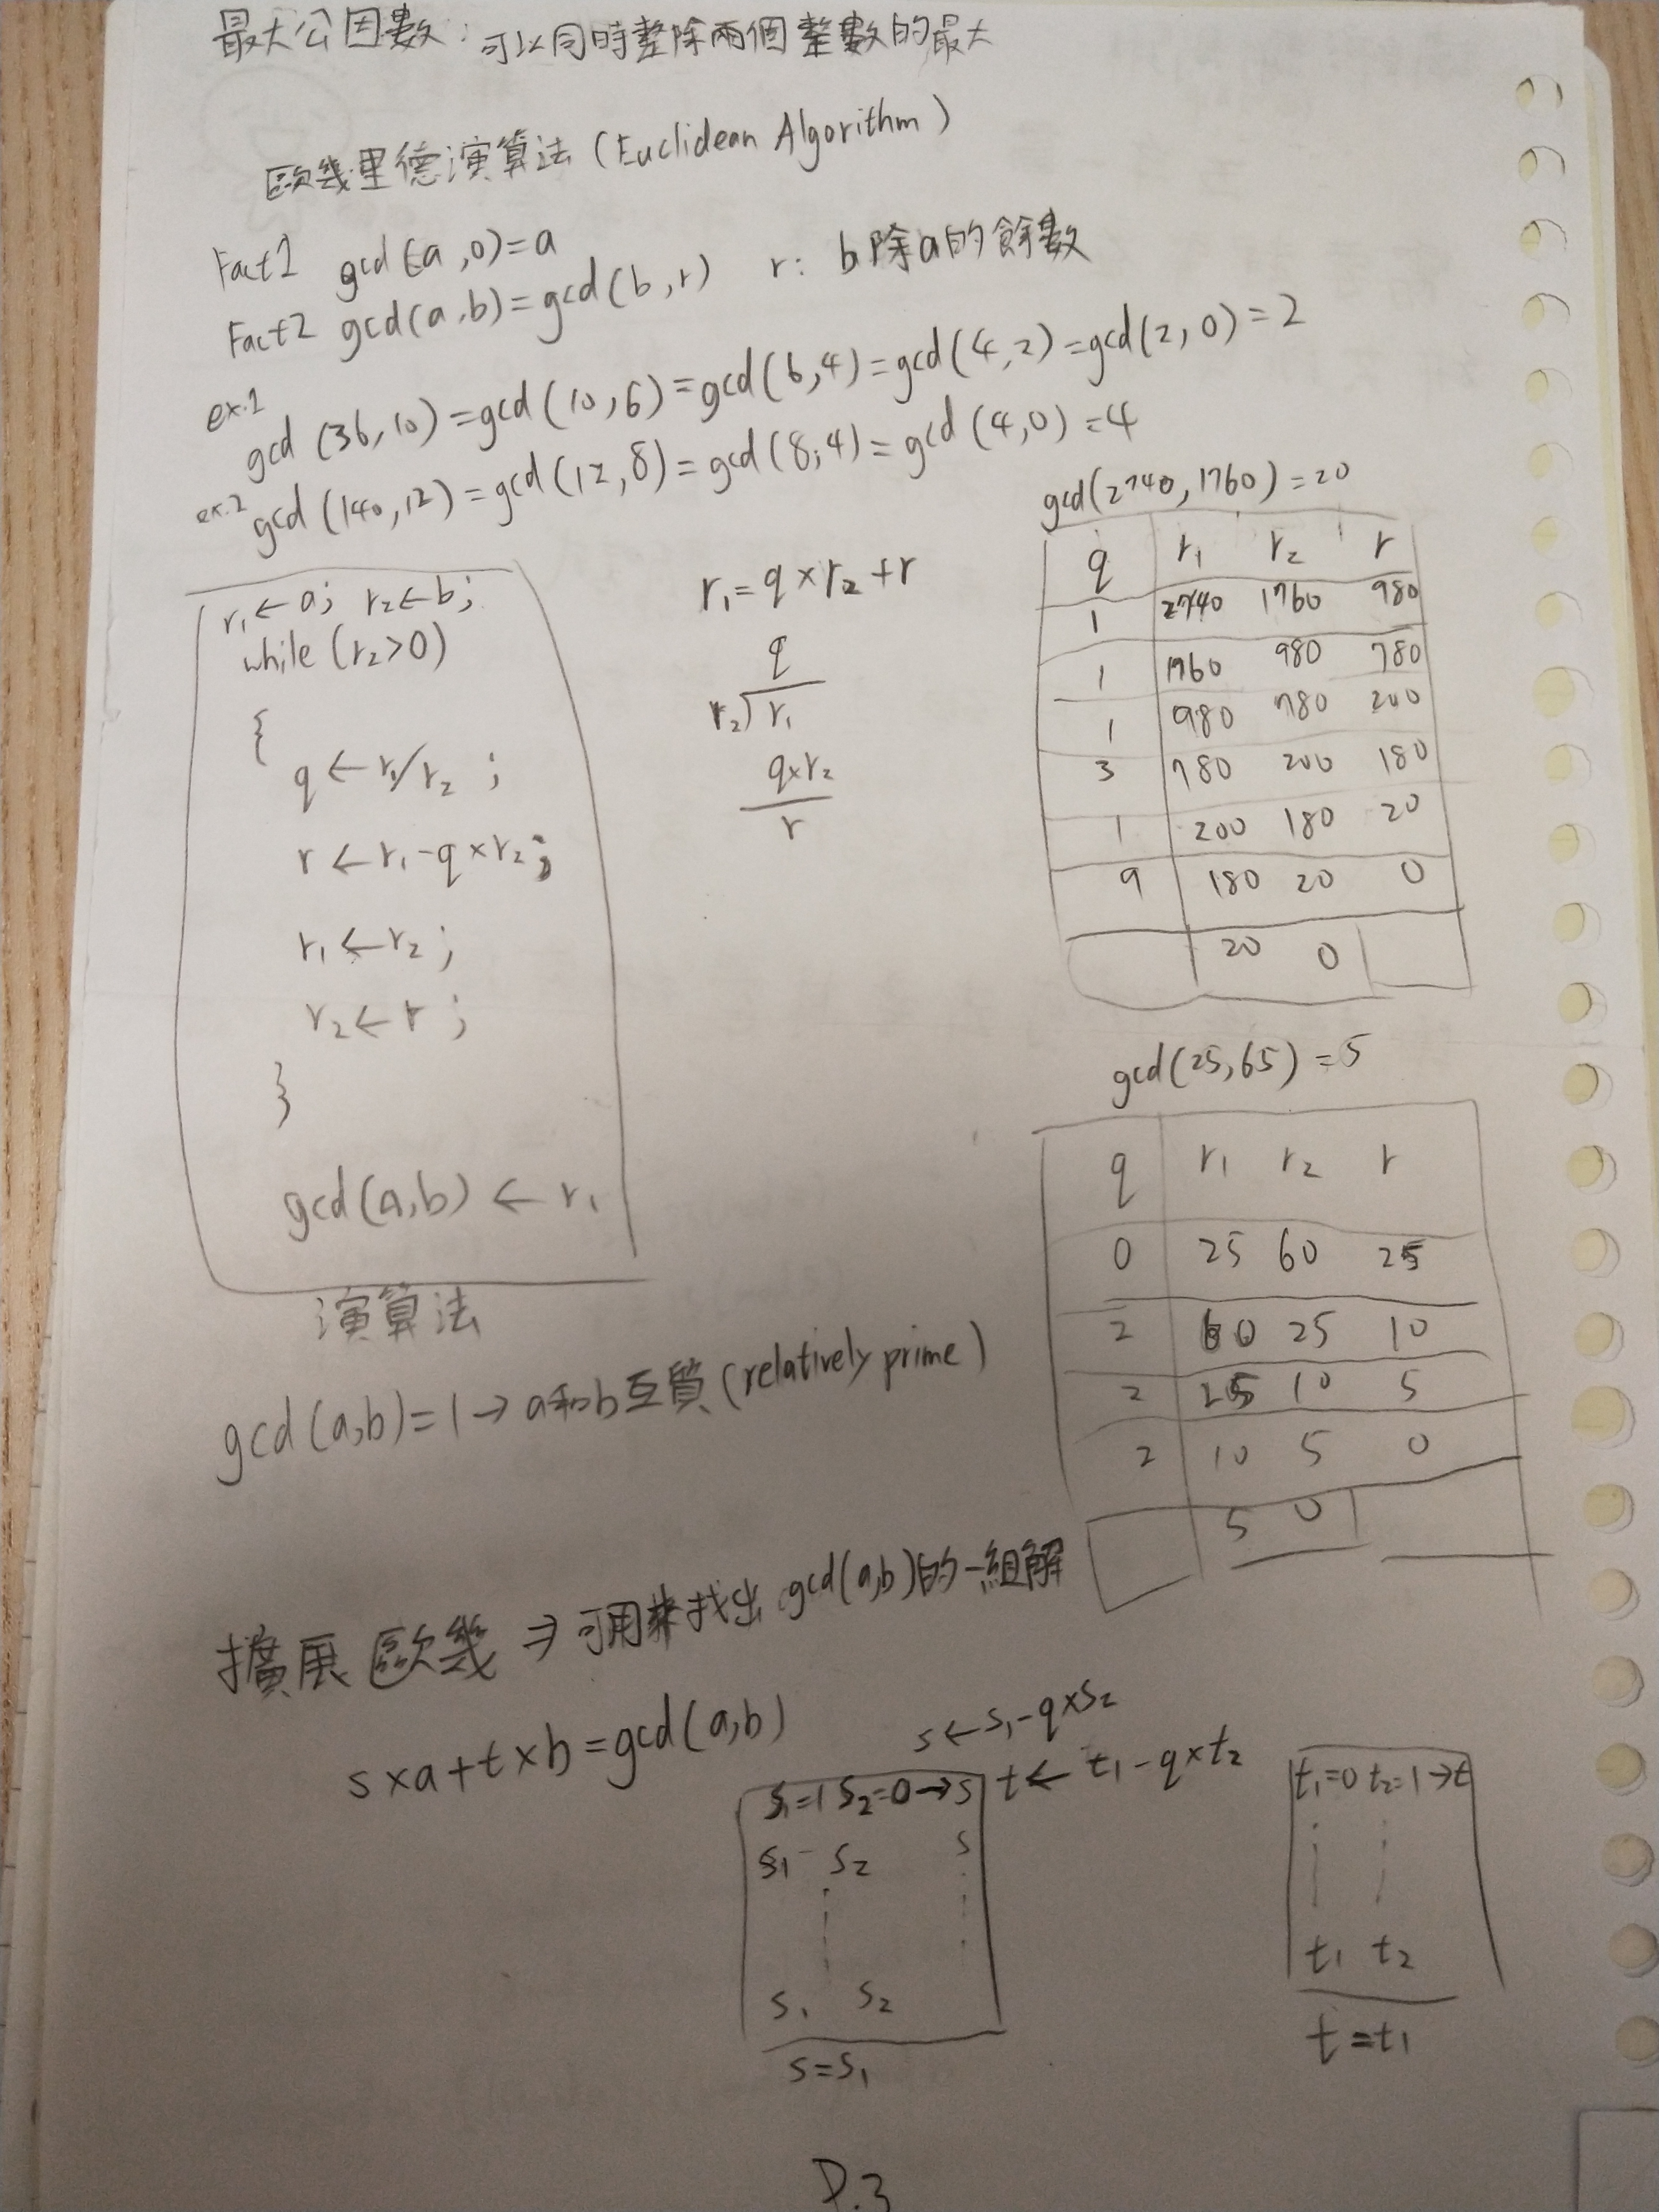 最大公因數：可以同時整除兩個整數的最大
歐幾里德演算法 (Euclidean Algorithm)
Fact1 gcd(a,0)=a
Fact2 gcd(a,b)=gcd(b,r) r: b除a的餘數
ex.1
gcd(36,10)=gcd(10,6)=gcd(6,4)=gcd(4,2)=gcd(2,0)=2
ex.2 gcd(140,12)=gcd(12,8)=gcd(8,4)=gcd(4,0)=4
r₁←a; r₂←b;
while(r₂>0)
{
q←r₁/r₂;
r←r₁-q×r₂;
r₁←r₂;
r₂←r;
}
gcd(a,b)←r₁
演算法
r₁=q×r₂+r
q
r₂)r₁
q×r₂
r
gcd(2740,1760)=20
q r₁ r₂ r
1 2740 1760 980
1 1760 980 780
1 980 780 200
3 780 200 180
1 200 180 20
9 180 20 0
20 0
gcd(25,65)=5
q r₁ r₂ r
0 25 60 25
2 60 25 10
2 25 10 5
2 10 5 0
5 0
gcd(a,b)=1→a和b互質(relatively prime)
擴展歐幾⇒可用來找出gcd(a,b)的一組解
s×a+t×b=gcd(a,b)
s←s₁-q×s₂
t←t₁-q×t₂
s₁=1 s₂=0→s
s₁ s₂ s
s₁ s₂
s=s₁
t₁=0 t₂=1→t
t₁ t₂
t=t₁
P.3